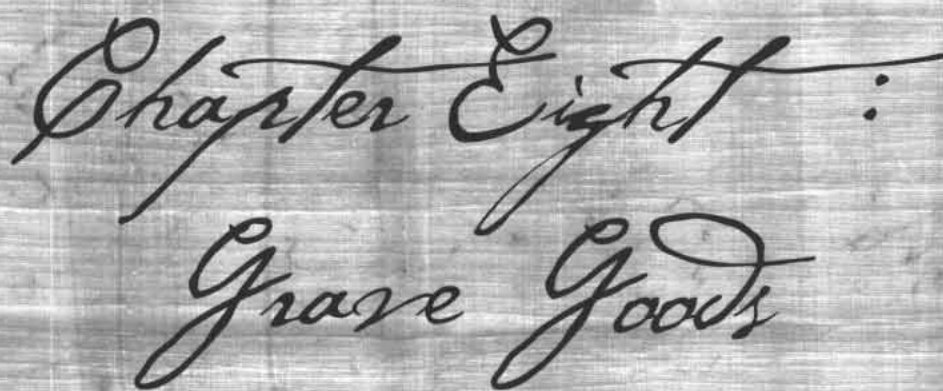 Chapter Eight :
Grave Goods